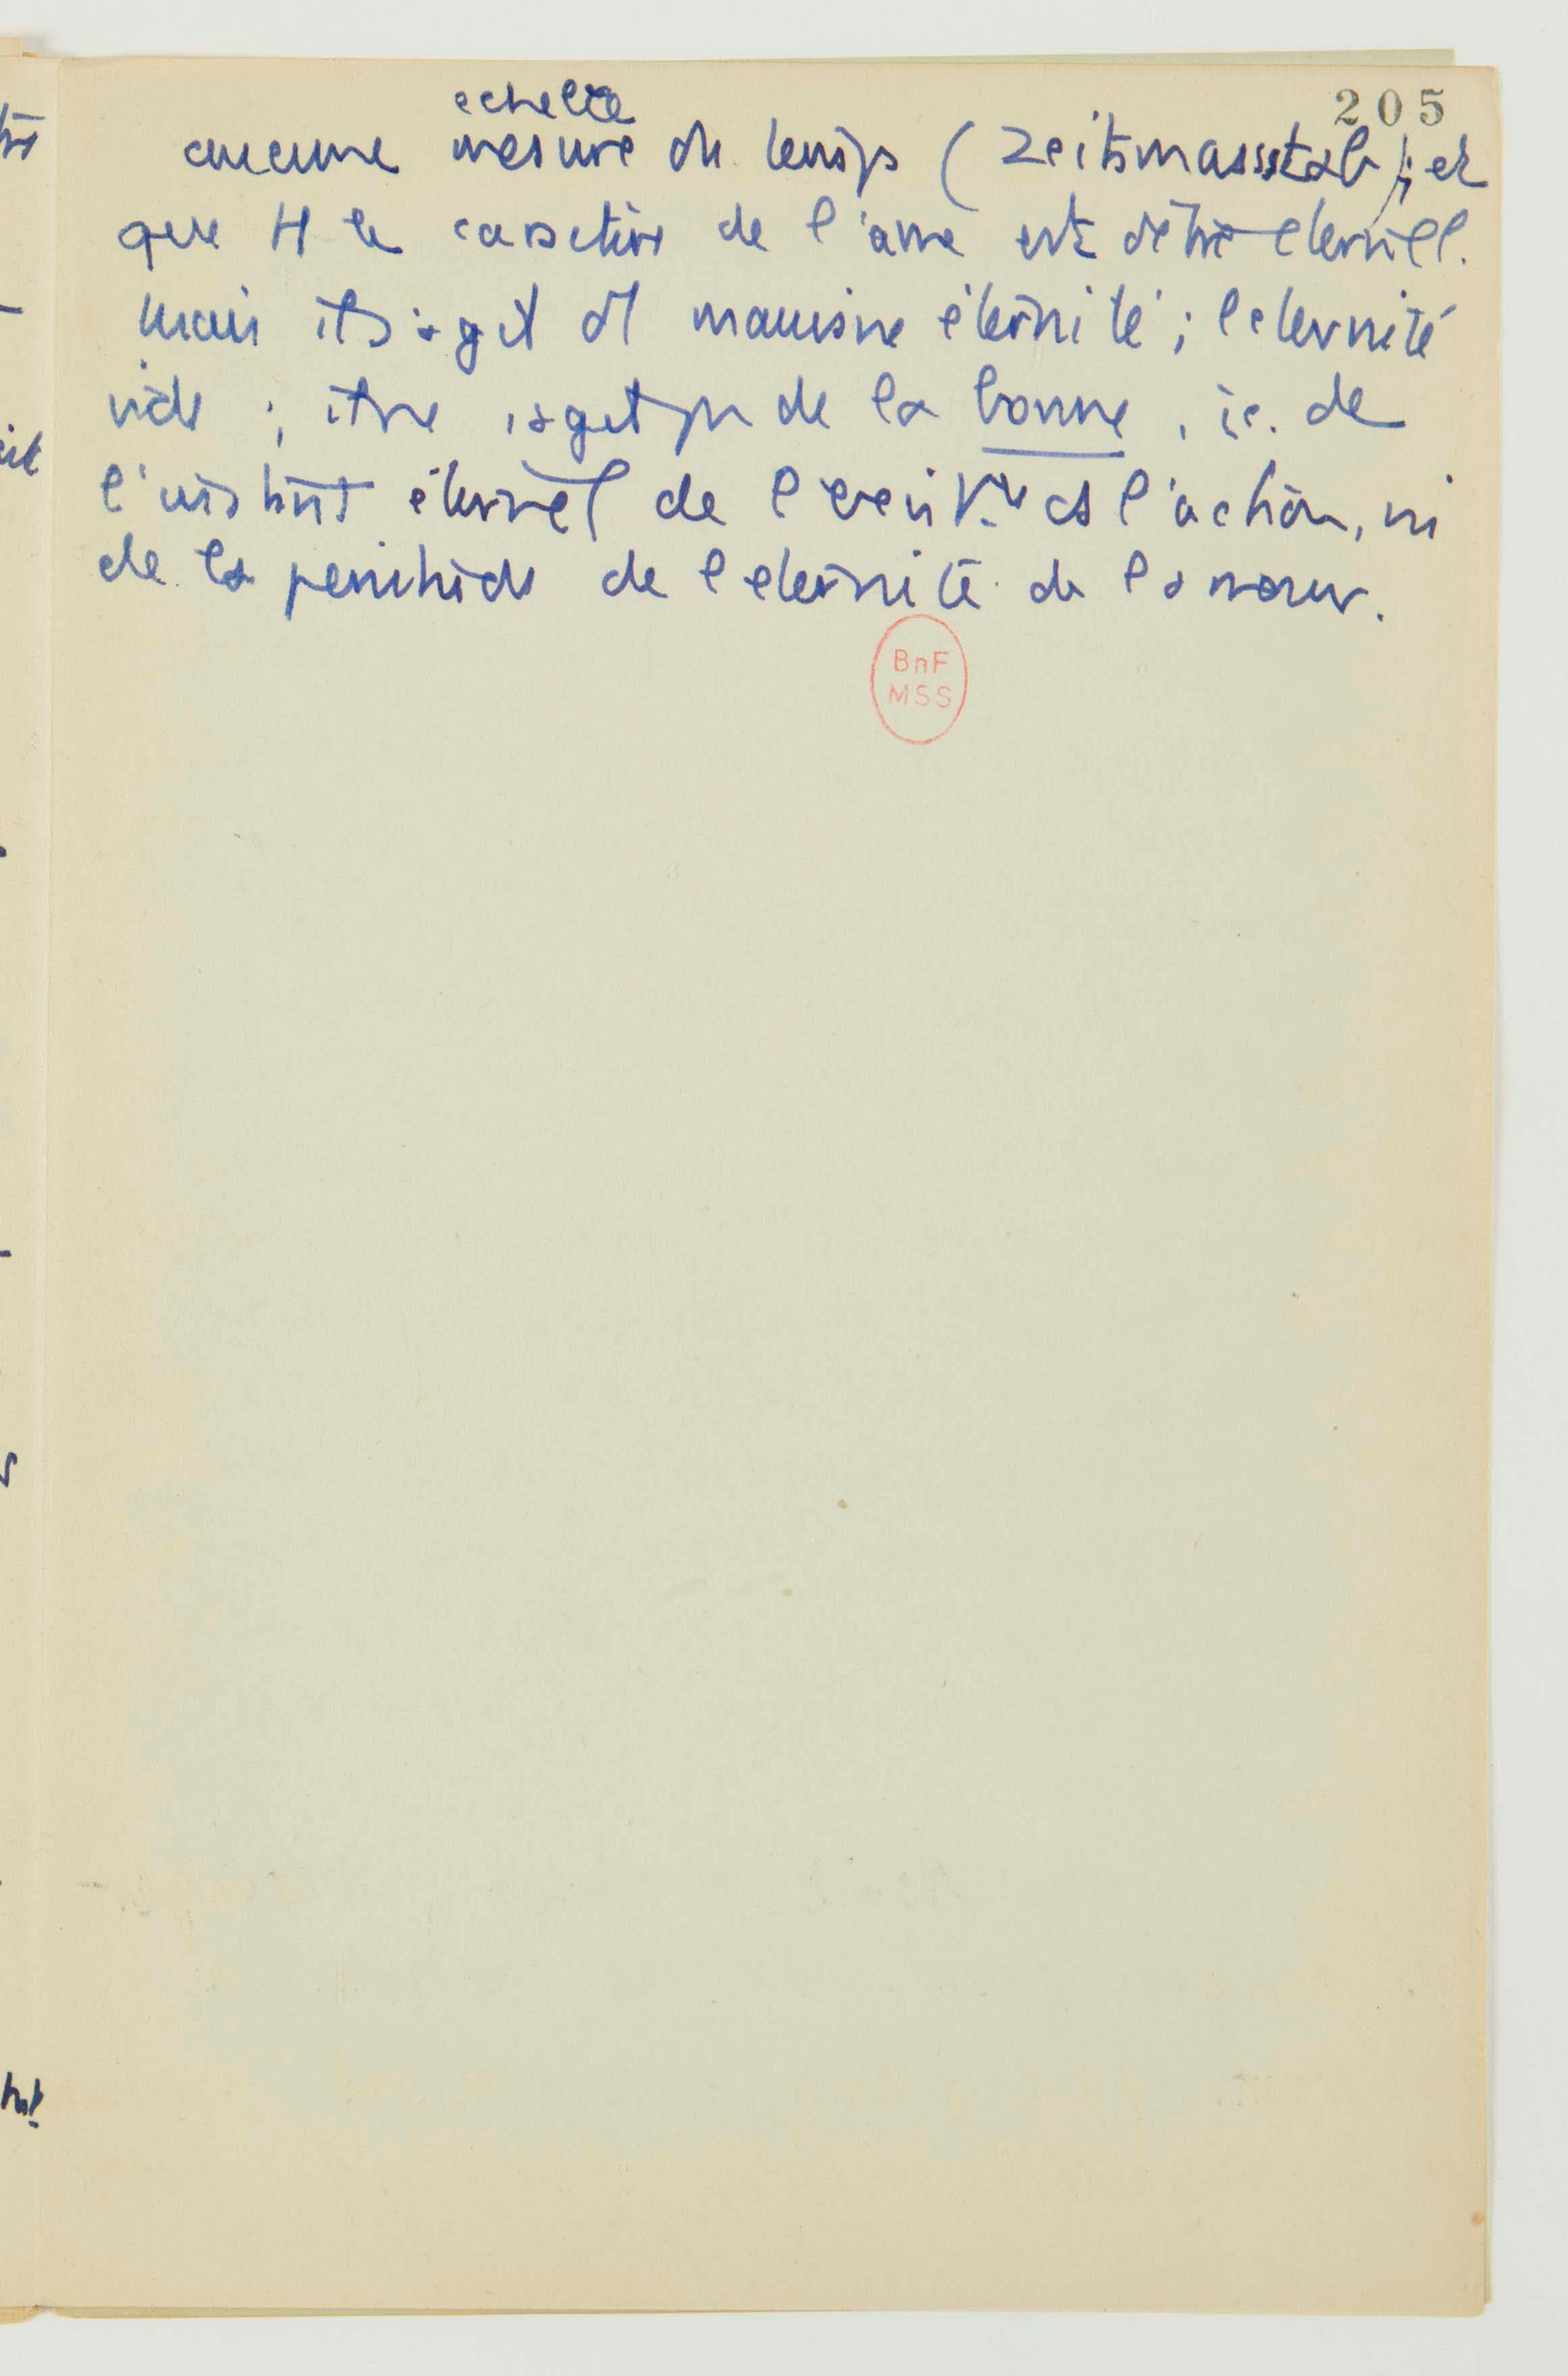 205
echelle
aucune mesure du temps (Zeitsmassstab); et
que H le caractère de l'ame est d'être eternell.
Mais il s'agit d'1 mauvaise éternité; l'eternité
vide ; il ne s'agit pas de la bonne, ie. de
l'instant éternel de l' ds l'action, ni
de la de l'eternité de l'amour.
BnF
MSS